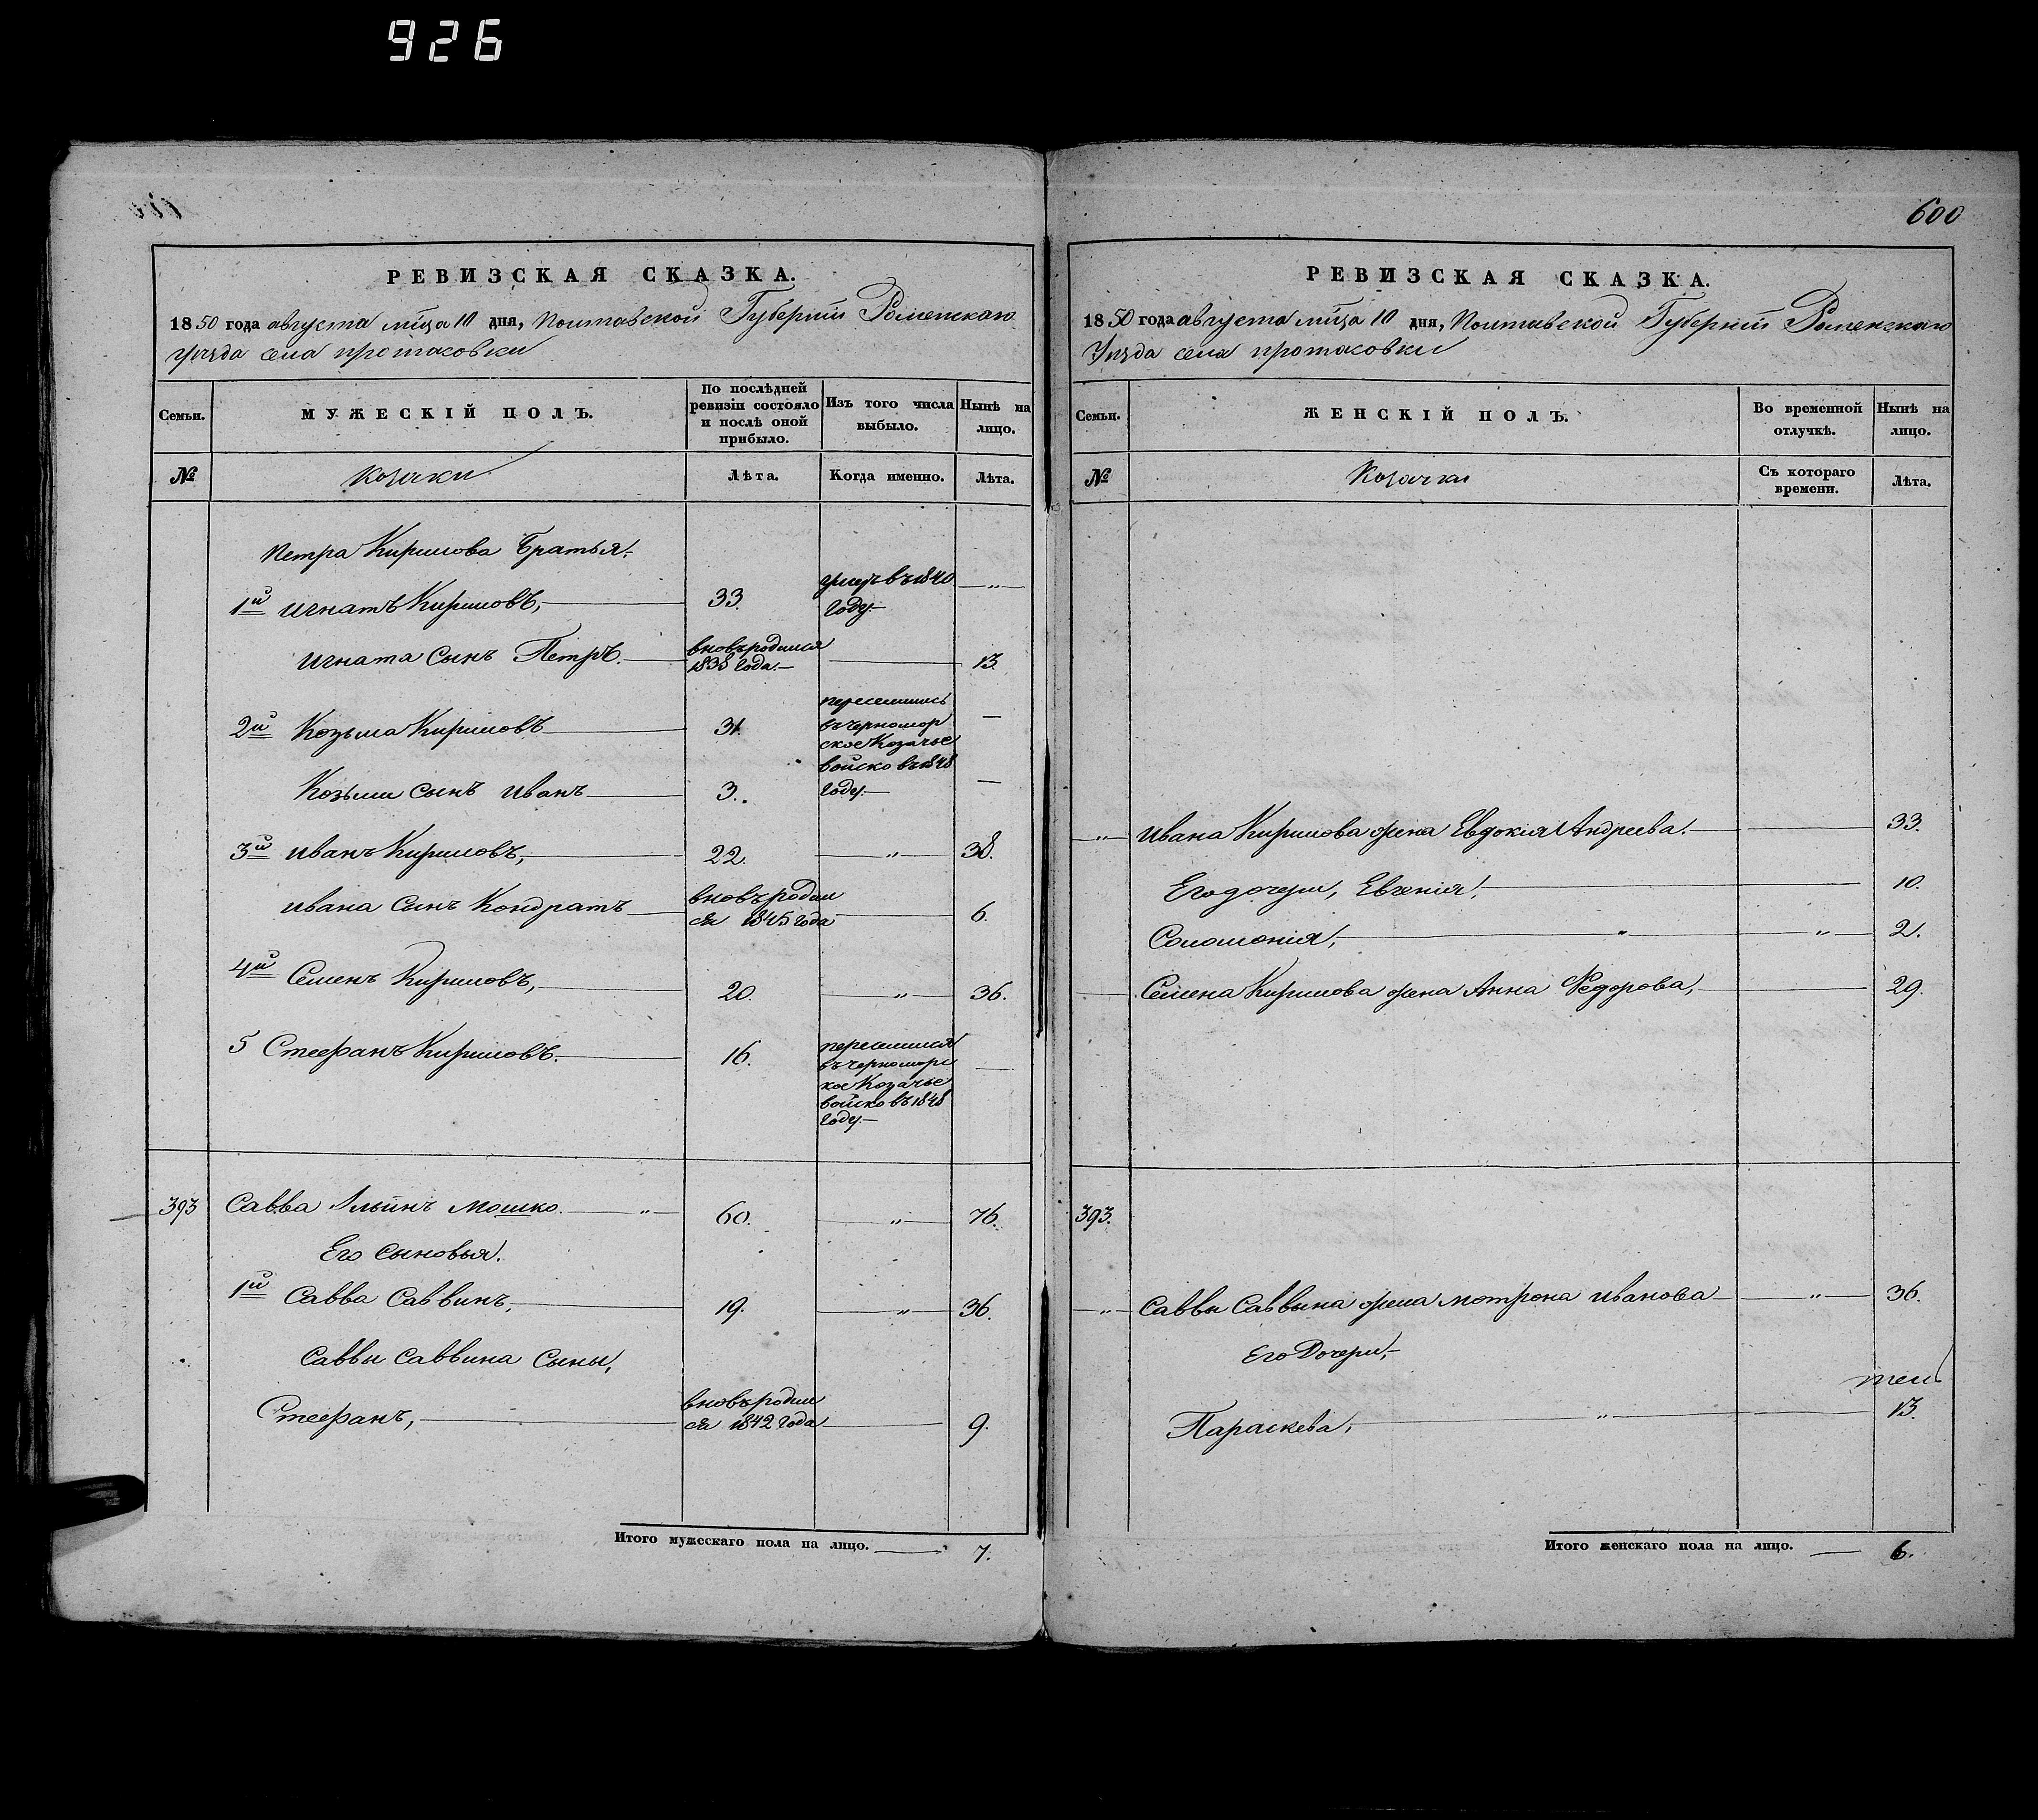 926
РЕВИЗСКАЯ СКАЗКА.
1850 года августа мѣца 10 дня, Полтавской Губерніи Роменскаго
Уѣзда села протасовки
Семьи.
МУЖЕСКІЙ ПОЛЪ.
По послѣдней ревизіи состояло и послѣ оной прибыло.
Изъ того числа выбыло.
Нынѣ на лицо.
№
козаки
Лѣта.
Когда именно.
Лѣта.
Петра Кирилова Братья.
1й Игнатъ Кириловъ, 33. умеръ въ 1840 году „
Игната Сынъ Петръ. вновьродился 1838 года. 13.
2й Козьма Кириловъ 31. переселились въ черномор ское Козачье войско въ 1848 году —
Козьми сынъ иванъ 3. —
3й иванъ Кириловъ, 22. „ 38.
ивана сынъ Кондратъ вновьродил ся 1845 года 6.
4й Семенъ Кириловъ, 20. „ 36.
5 Стефанъ Кириловъ. 16. переселился въ черноморс кое Козачье войско въ 1848 году. —
393 Савва Ильинъ Мошко. „ 60. „ 76.
Его Сыновья.
1й Савва Саввинъ, 19. „ 36.
Саввы Саввина Сыны,
Стефанъ, вновьродил ся 1842 года 9.
Итого мужескаго пола на лицо. 7.
600
РЕВИЗСКАЯ СКАЗКА.
1850 года августа мѣца 10 дня, Полтавской Губерніи Роменскаго
Уѣзда села протасовки
Семьи.
ЖЕНСКІЙ ПОЛЪ.
Во временной отлучкѣ.
Нынѣ на лицо.
№
Козачки
Съ котораго времени.
Лѣта.
„ Ивана Кирилова жена Евдокія Андреева. 33.
Его дочери, Евгенія, 10.
Соломонія, „ „ 2.
Семена Кирилова жена Анна Федорова, 29.
393.
„ Саввы Саввына жена мотрона иванова „ 36.
Его Дочери,
Параскева, „ 13.
Итого женскаго пола на лицо. 6.